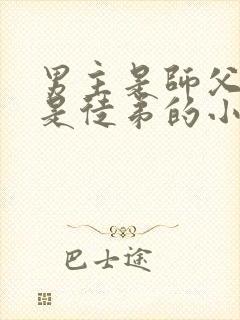 男主是師父
是徒弟的小
巴士途